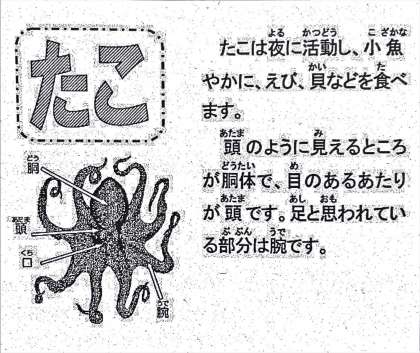 たこ
胴
頭
口
腕
たこは夜に活動し、小魚
やかに、えび、貝などを食べ
ます。
頭のように見えるところ
が胴体で、目のあるあたり
が頭です。足と思われてい
る部分は腕です。